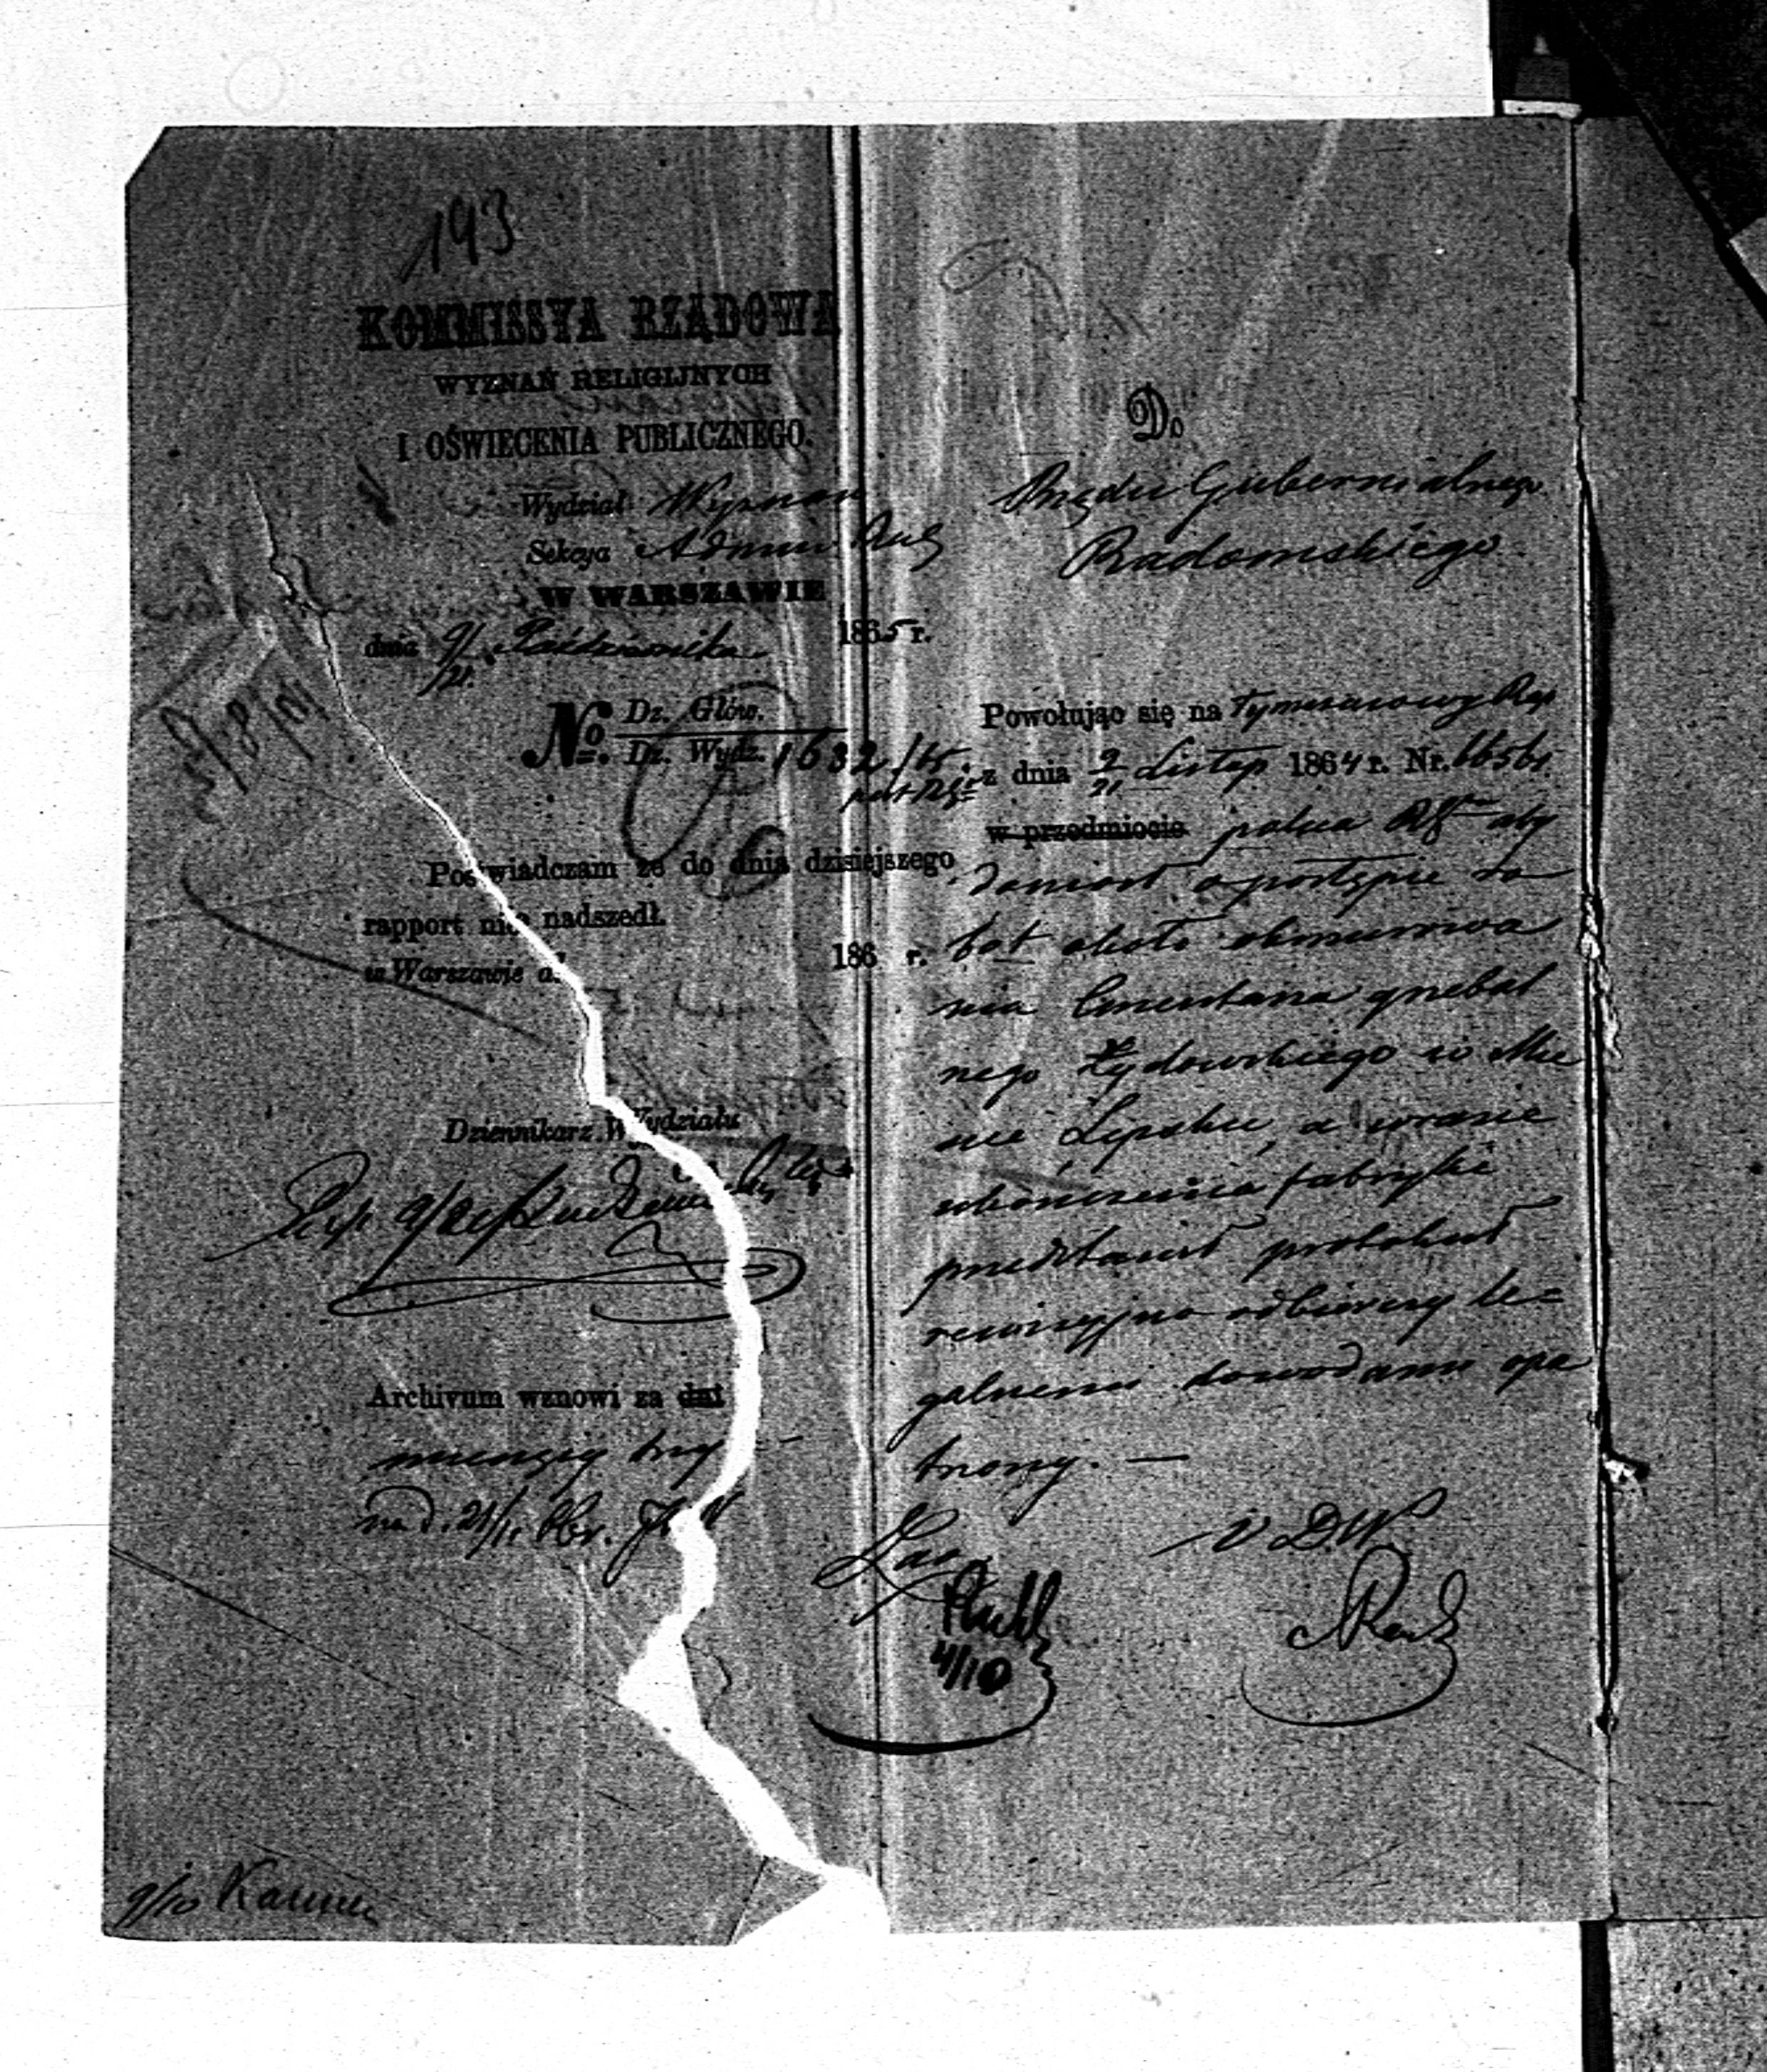 193
KOMMISSYA RZĄDOWA
WYZNAŃ RELIGIJNYCH
I OŚWIECENIA PUBLICZNEGO.
Wydział Wyznań
Sekcya Admin
W WARSZAWIE
dnia 9/21 Października 1865 r.
No. Dz. Głów.
Dz. Wydz. 1632/65.
Poświadczam że do dnia dzisiejszego
rapport nie nadszedł.
w Warszawie d. 186 r.
Dziennikarz Wydziału
Archivum wznowi za dni
miesięcy trzy
na d. 21/
9/10
Do
Rządu Gubernialnego
Radomskiego
Powołując się na tymczasowy Rap
z dnia 9/21 Listop 1864 r. Nr. 66561
w przedmiocie poleca aby
doniosł o postępie ro
bot około obmurowa
nia Cmentarza grzebal
nego Żydowskiego w Mie
ście Lipsku, a w razie
ukończenia fabryki
przedstawił protokuł
rewizyjno odbiorczy le=
galnemi dowodami opa
trzony. —
4/10